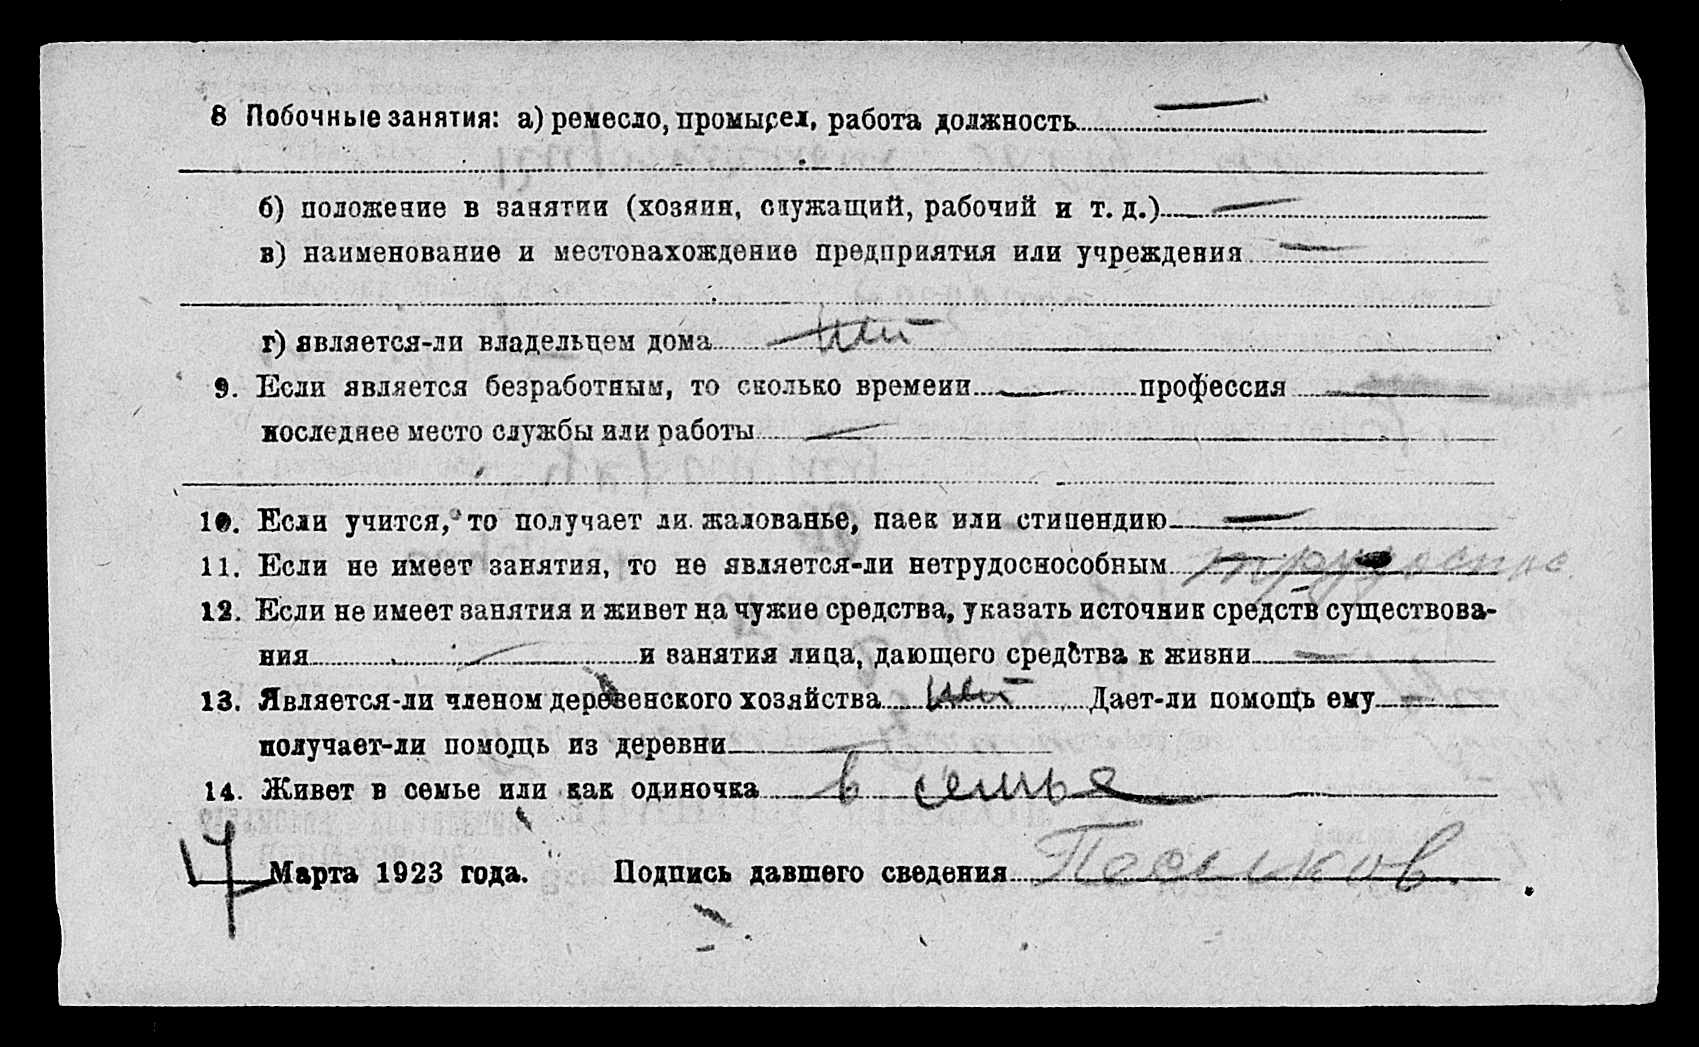 8 Побочные занятия: а) ремесло, промысел, работа должность —
б) положение в занятии (хозяин, служащий, рабочий и т. д.) —
в) наименование и местонахождение предприятия или учреждения —
г) является-ли владельцем дома нет
9. Если является безработным, то сколько времени — профессия —
последнее место службы или работы —
10. Если учится, то получает ли жалованье, паек или стипендию —
11. Если не имеет занятия, то не является-ли нетрудоспособным трудоспос
12. Если не имеет занятия и живет на чужие средства, указать источник средств существова-
ния — и занятия лица, дающего средства к жизни —
13. Является-ли членом деревенского хозяйства нет Дает-ли помощь ему —
получает-ли помощь из деревни —
14. Живет в семье или как одиночка в семье
17 Марта 1923 года. Подпись давшего сведения